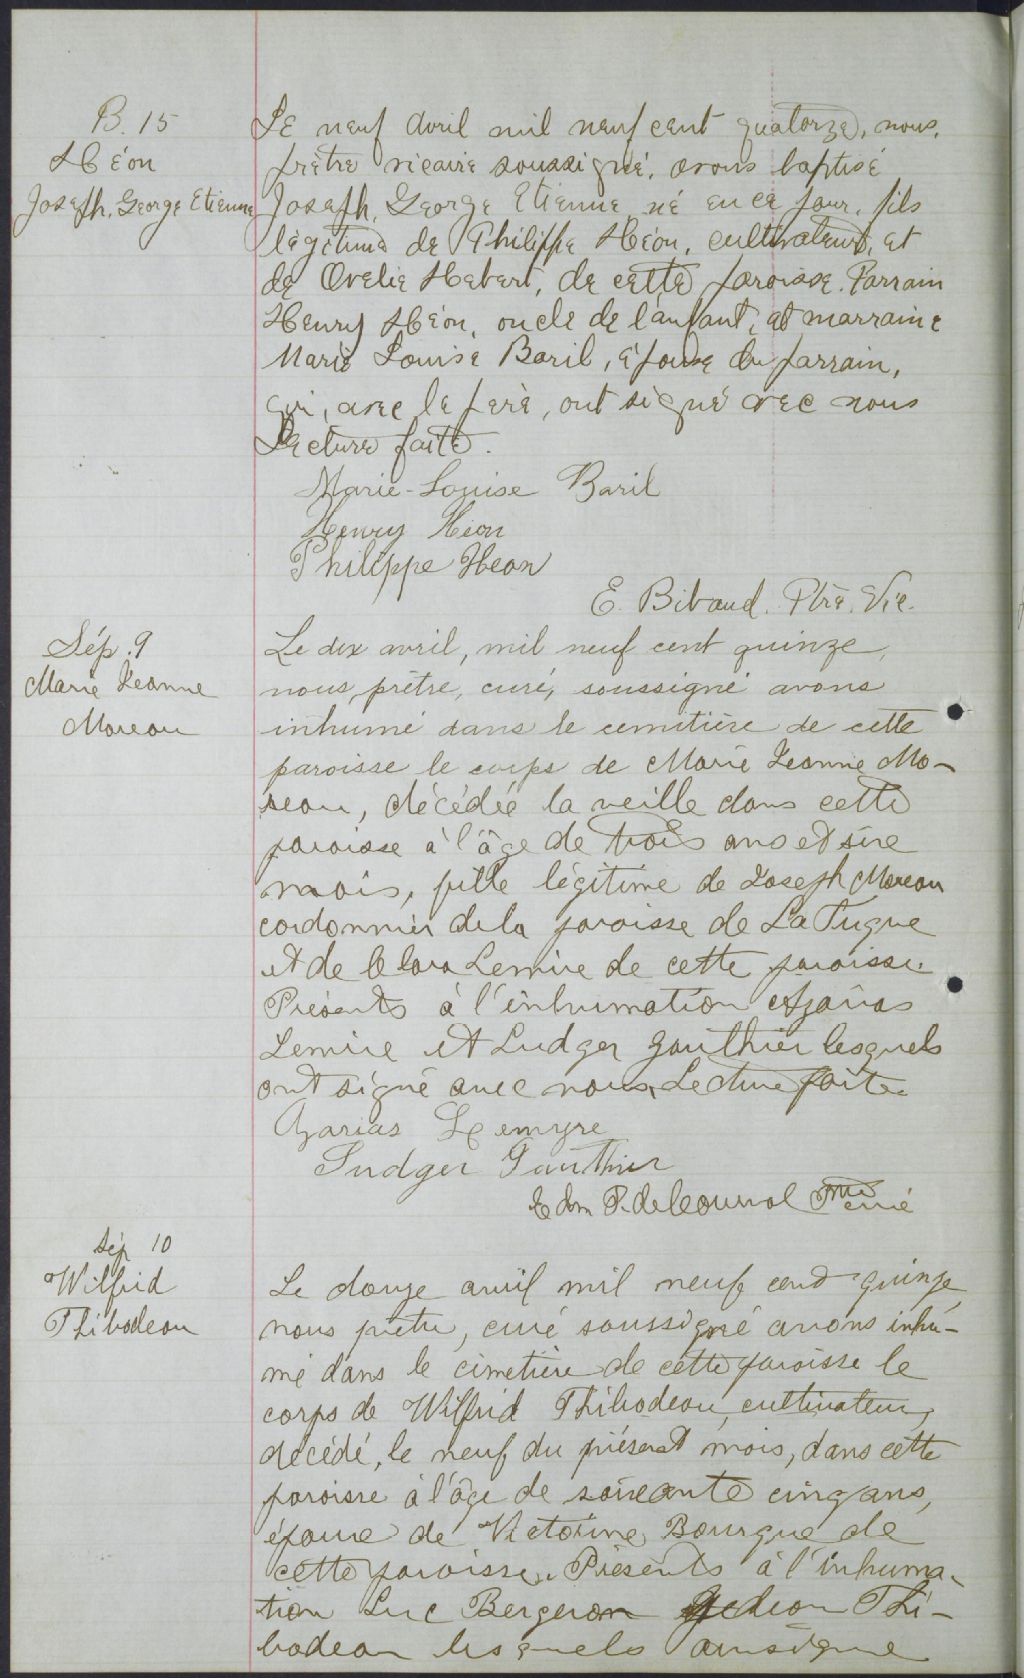 B. 15
Héon
Joseph, George Etienne
Le neuf Avril mil neuf cent quatorze, nous,
prêtre vicaire soussigné, avons baptisé
Joseph, George Etienne, né en ce jour, fils
légitime de Philippe Héon, cultivateur, et
de Ovelie Hebert, de cette paroisse. Parrain
Henry Héon, oncle de l'enfant, et marraine
Marie Louise Baril, épouse du parrain,
qui, avec le père, ont signé avec nous
Lecture faite.
Marie-Louise Baril
Henry Héon
Philippe Heon
E. Bibaud. Ptre. Vic.
Sép. 9
Marie Jeanne
Moreau
Le dix avril, mil neuf cent quinze,
nous, prêtre, curé, soussigné avons
inhumé dans le cemitière de cette
paroisse le corps de Marie Jeanne Mo-
reau, décédée la veille dans cette
paroisse à l'âge de trois ans et six
mois, fille légitime de Joseph Moreau
cordonnier de la paroisse de La Tuque
et de Clara Lemire de cette paroisse.
Présents à l'inhumation Azarias
Lemire et Ludger Gauthier lesquels
ont signé avec nous, Lecture faite.
Azarias Lemyre
Ludger Gauthier
Edm P. de Courval Ptre curé
Sép 10
Wilfrid
Thibodeau
Le douze avril mil neuf cent quinze,
nous prêtre, curé soussigné avons inhu-
mé dans le cimetière de cette paroisse le
corps de Wilfrid Thibodeau, cultivateur,
décédé, le neuf du présent mois, dans cette
paroisse à l'âge de soixante cinq ans,
époux de Victorine Bourque de
cette paroisse. Présents à l'inhuma-
tion Luc Bergeron Gedeon Thi-
bodeau lesquels